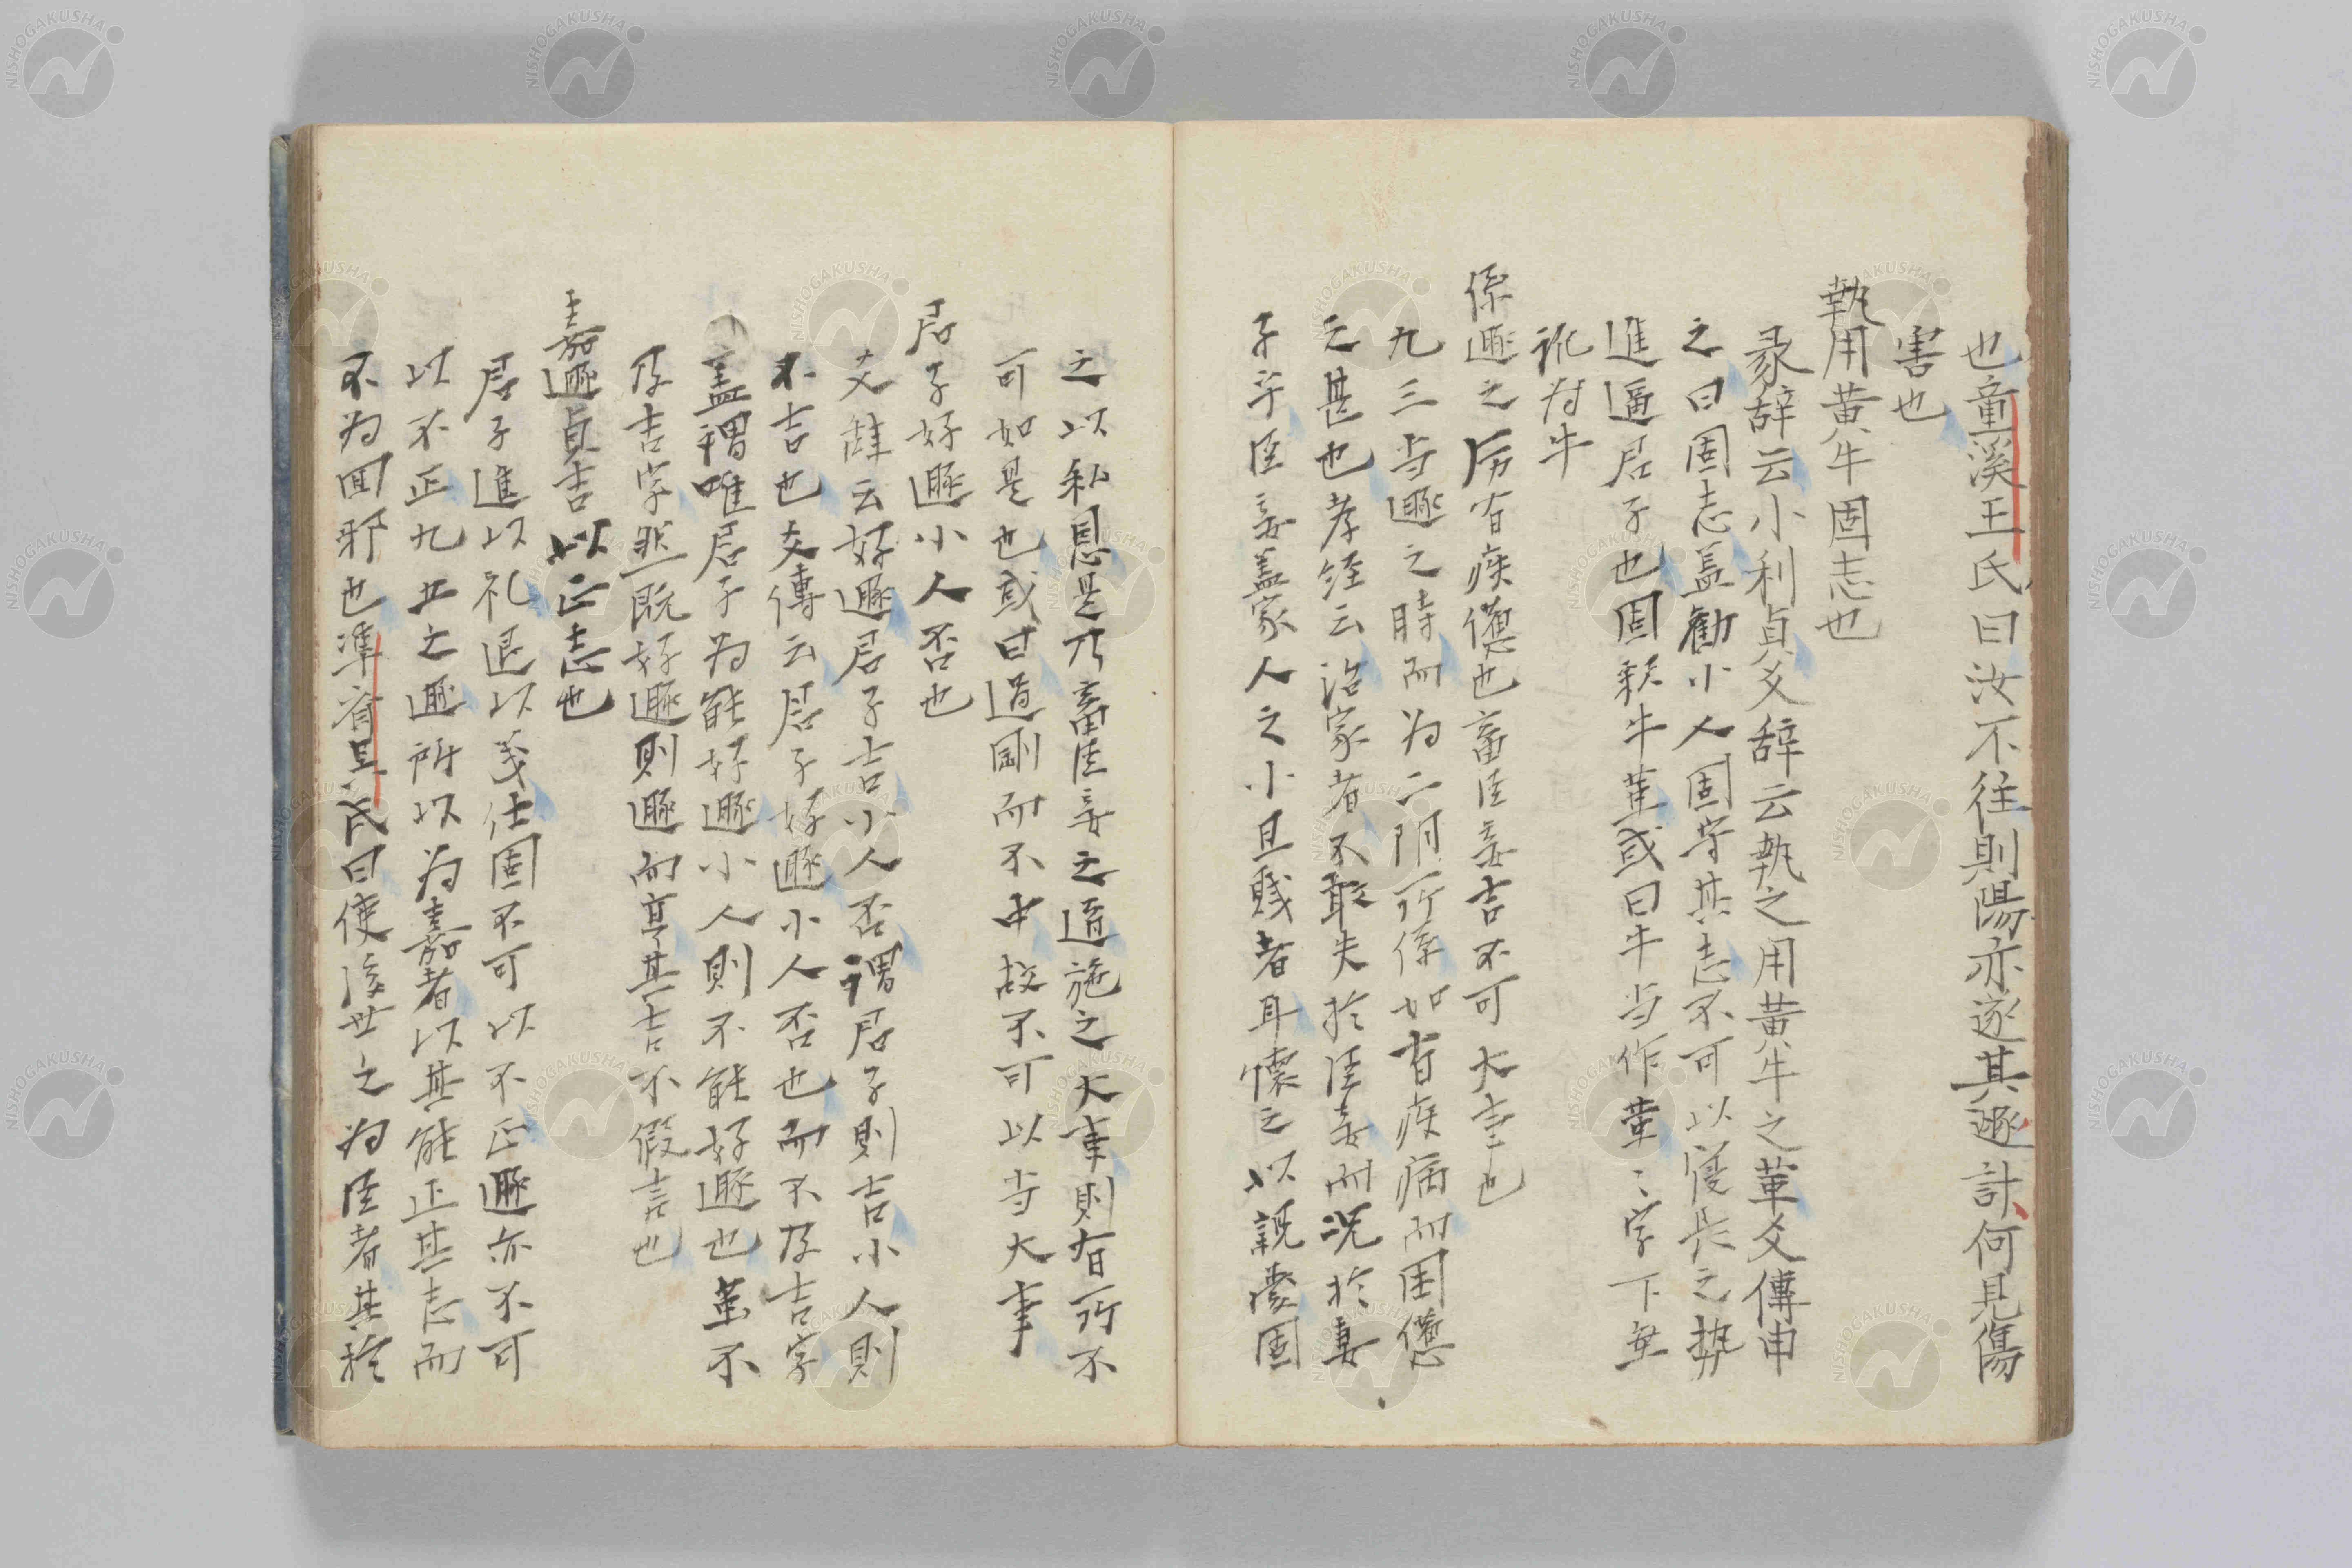 也童溪王氏曰汝不往則陽亦遂其遯計何見傷
害也
執用黄牛固志也
彖辞云小利貞爻辞云執之用黄牛之革爻傳申
之曰固志盖勧小人固守其志不可以侵長之勢
進逼君子也固釈牛革或曰牛当作革〻字下無
訛为牛
係遯之厉有疾憊也畜臣妾吉不可大事也
九三当遯之時而为二阴所係如有疾病而困憊
之甚也孝経云治家者不敢失於臣妾而况於妻
子乎臣妾盖家人之小且賎者耳懐之以親愛固
之以私恩是乃畜臣妾之道施之大事則有所不
可如是也或曰過剛而不中故不可以当大事
君子好遯小人否也
爻辞云好遯君子吉小人否謂君子則吉小人則
不吉也爻傳云君子好遯小人否也而不及吉字
盖謂唯君子为能好遯小人則不能好遯也虽不
及吉字然既好遯則遯而亨其吉不假言也
嘉遯貞吉以正志也
君子進以礼退以义仕固不可以不正遯亦不可
以不正九五之遯所以为嘉者以其能正其志而
不为囬邪也準斎呉氏曰使後世之为臣者其於
NISHOGAKUSHA